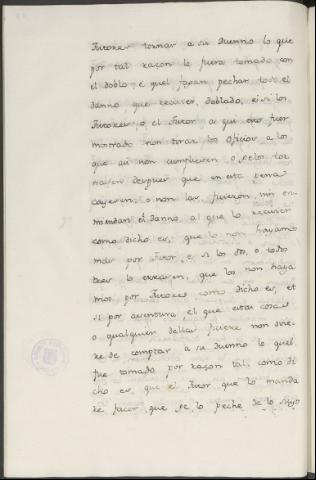 Juroxes tornar a su Duenno lo que
por tal raçon le fuera tomado con
el doblo, e quel fagan pechar todo el
danno que reciviere doblado, e si los
Juroxes, o el Juror a qui esto fuer
mostrado non tirar los oficios a los
que así non cumplieren, o selos tor
naren despues que en esta pena
cayeren, o non las ficieren, nin en
miendan el danno al que lo reciviere
como dicho es, que lo non hayamos
mas por Juror, e si los dos, o todos
tres lo erraren, que los non haya
mos por Juroxes como dicho es, et
si por aventura el que estas cosas
o qualquier dellas ficiere non ovie
re de comptar a su Duenno lo quel
fue tomado por raçon tal, como di
cho es que el Juror que lo manda
re facer, que se lo peche de lo suyo